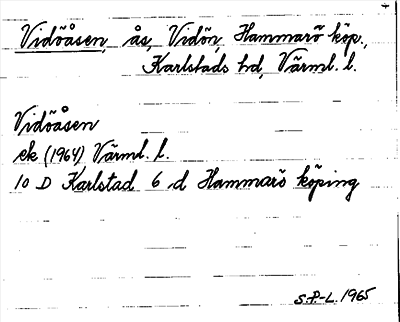 Vidöåsen, ås, Vidön, Hammarö köp.,
Karlstads hd, Värml. l.
Vidöåsen
ek (1964) Värml. l.
10 D Karlstad 6 d Hammarö köping
S.P-L. 1965